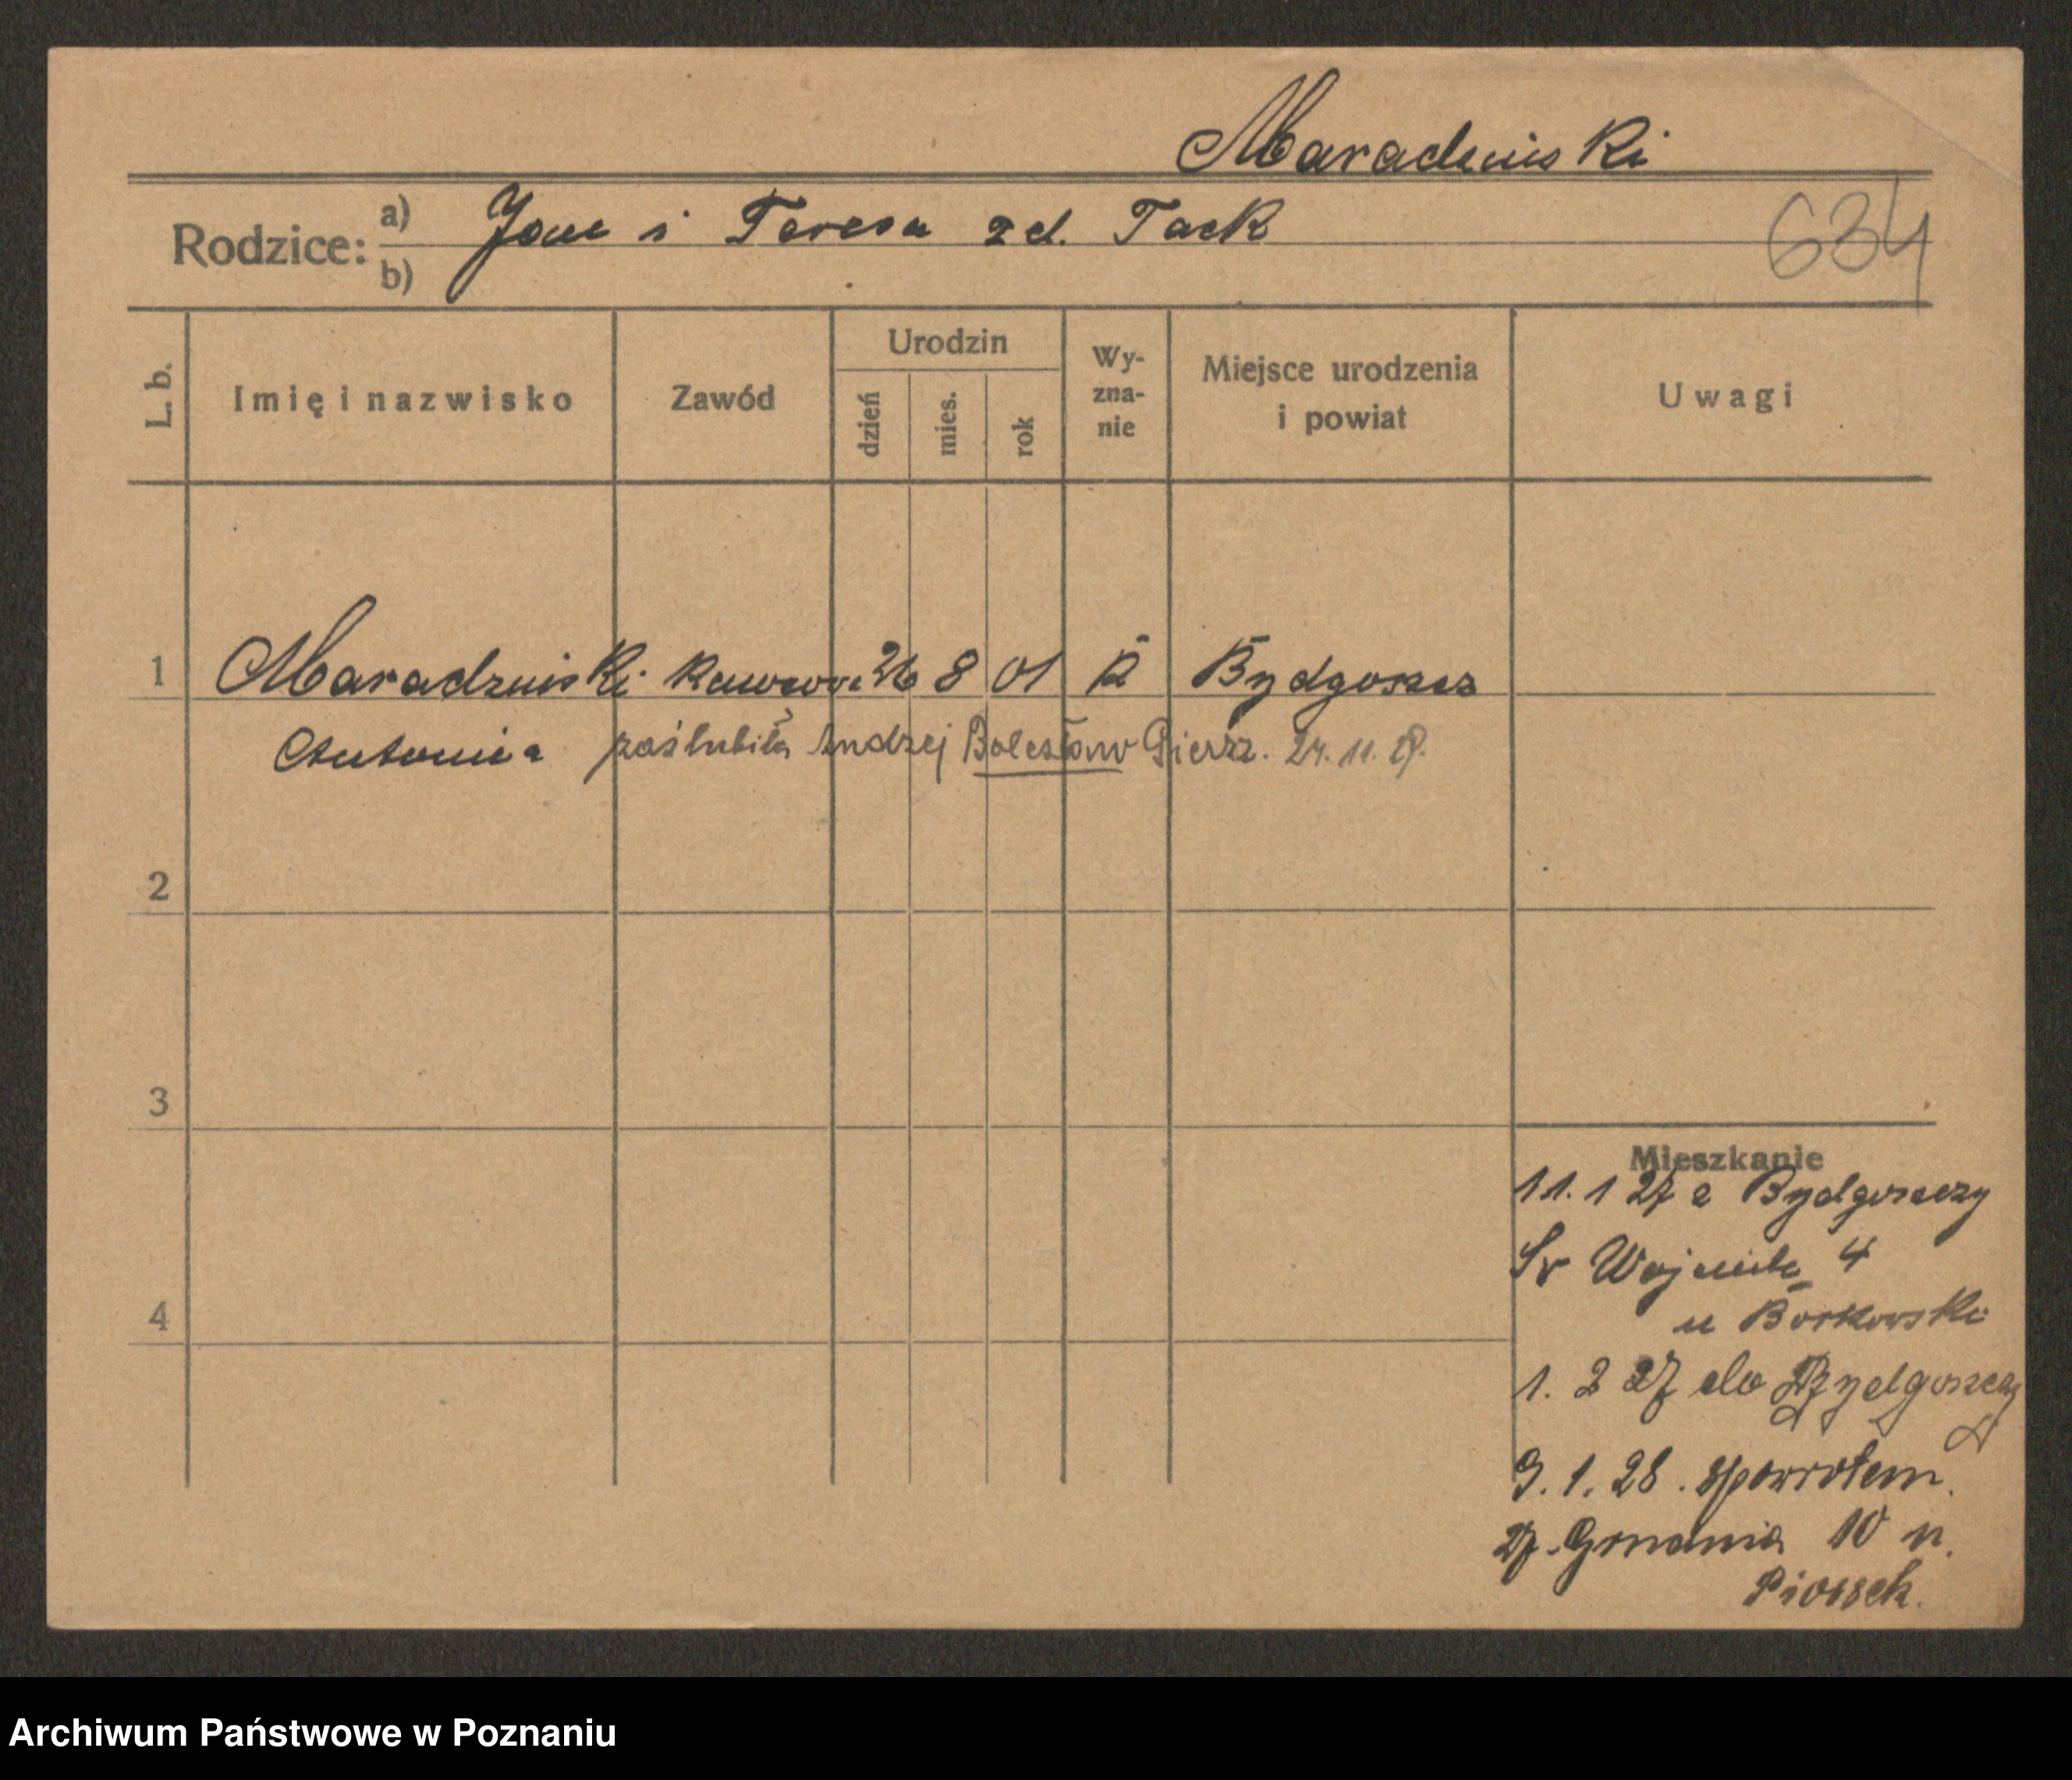 Maradziński
Rodzice: a) Jan i Teresa zd. Tack
b)
634
L. b.
Imię i nazwisko
Zawód
Urodzin
dzień
mies.
rok
Wy-
zna-
nie
Miejsce urodzenia
i powiat
Uwagi
1 Maradziński 26 8 01 R Bydgoszcz
Antonia poślubiła Andrzej Bolesław Pierz. 24.11.
2
3
4
Mieszkanie
11. 1 27 z Bydgoszczy
Św Wojciecha 4
u Borkowski
1. 2 27 do Bydgoszczy
9. 1. 28. spowrotem
10 u.
Piossek.
Archiwum Państwowe w Poznaniu